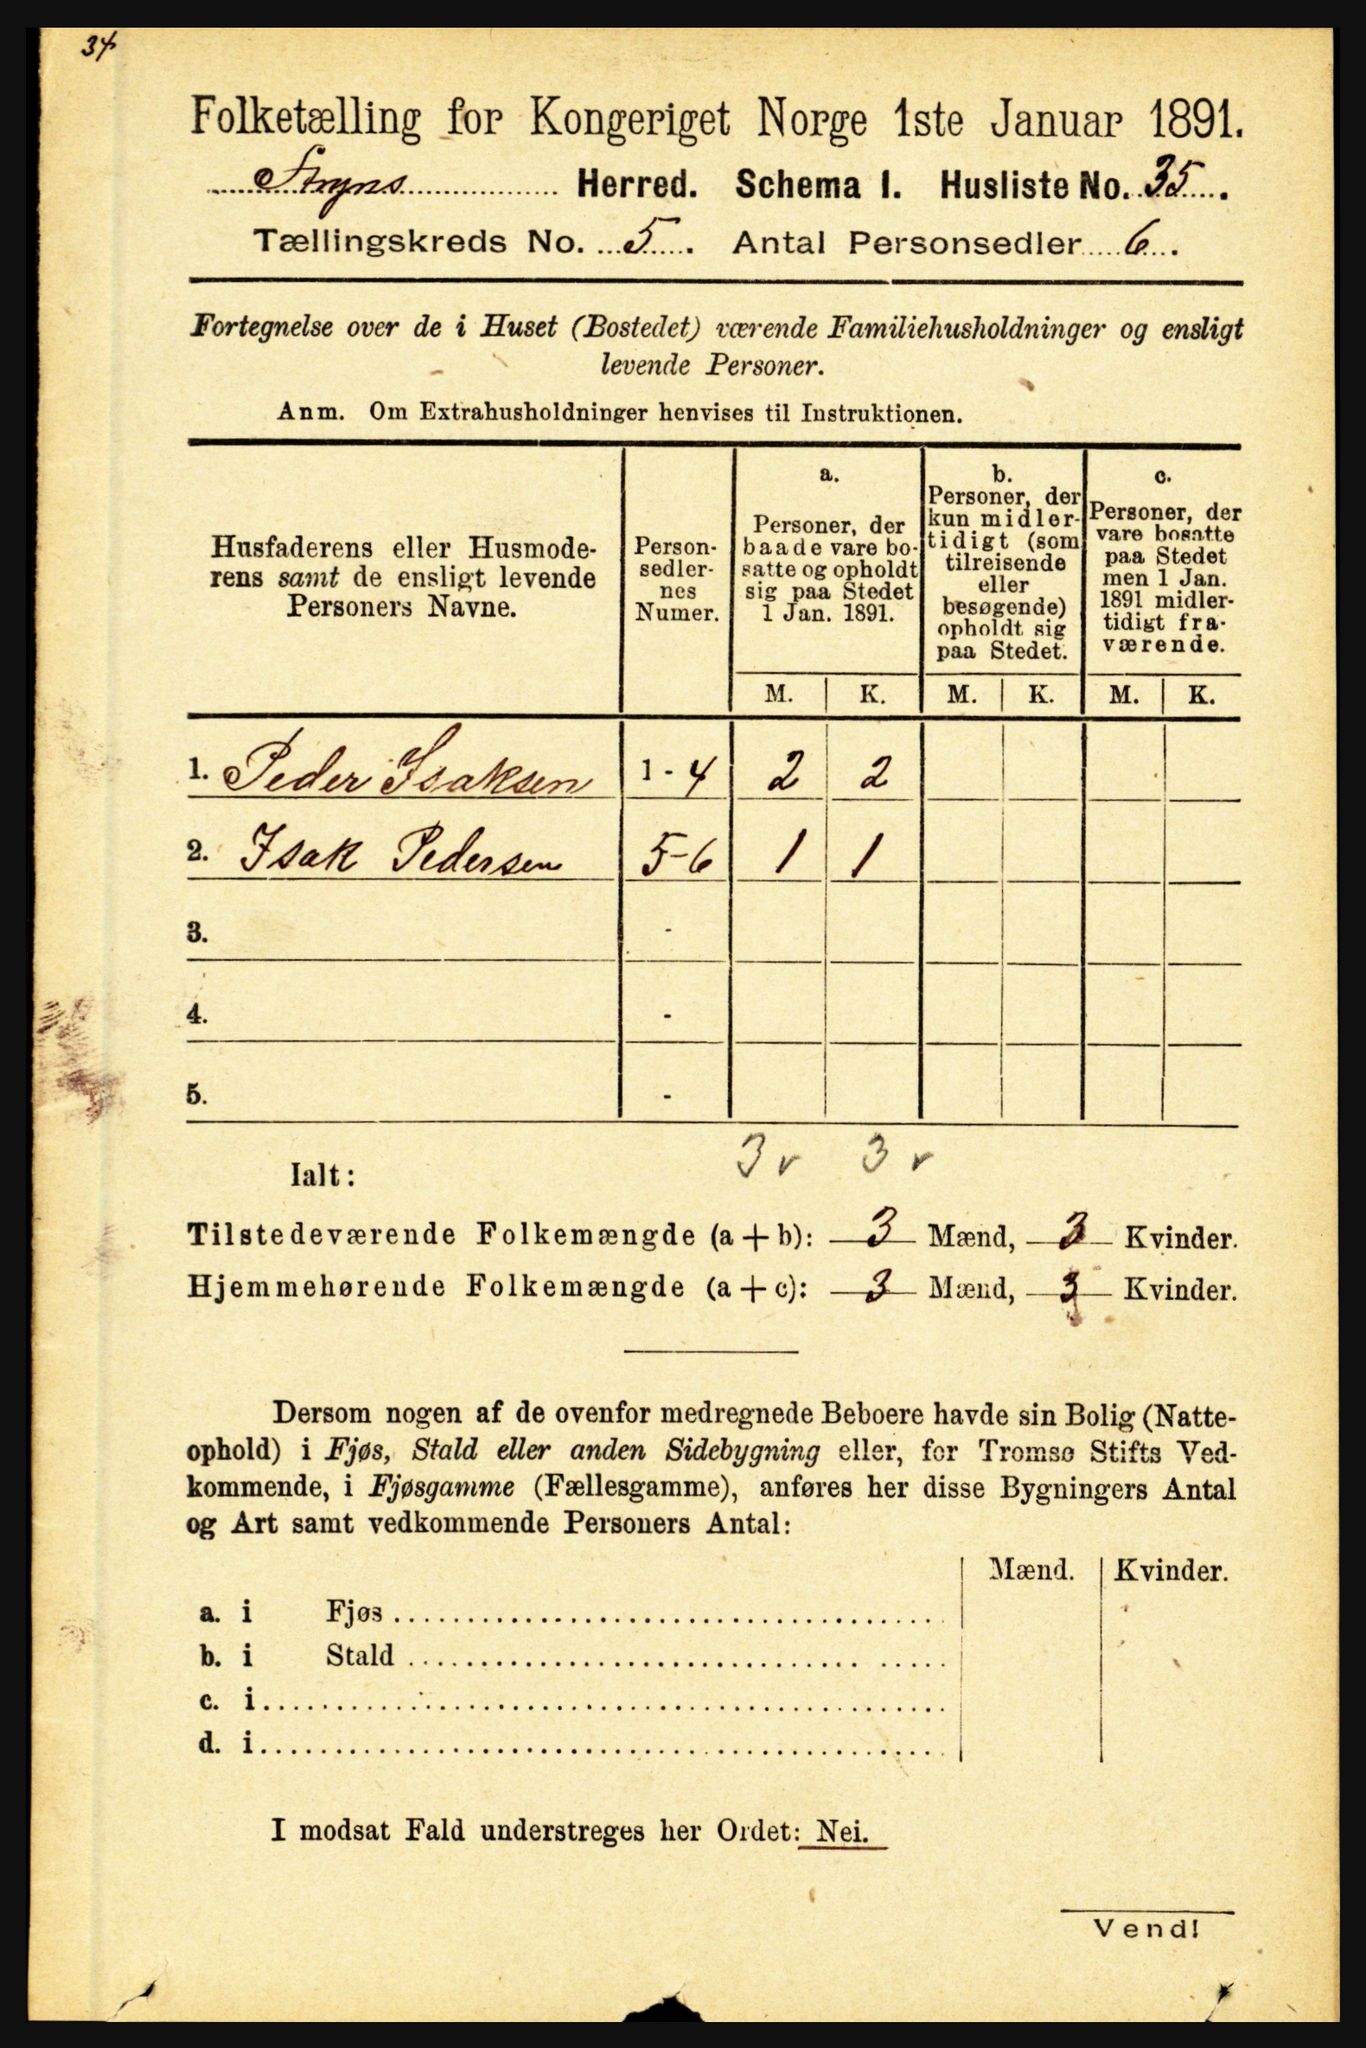 34
Folketælling for Kongeriget Norge 1ste Januar 1891.
Stryns Herred. Schema I. Husliste No. 35.
Tællingskreds No. 5. Antal Personsedler 6.
Fortegnelse over de i Huset (Bostedet) værende Familiehusholdninger og ensligt
levende Personer.
Anm. Om Extrahusholdninger henvises til Instruktionen.
Husfaderens eller Husmode-
rens samt de ensligt levende
Personers Navne.
Person-
sedler-
nes
Numer.
a.
Personer, der
baade vare bo-
satte og opholdt
sig paa Stedet
1 Jan. 1891.
b.
Personer, der
kun midler-
tidigt (som
tilreisende
eller
besøgende)
opholdt sig
paa Stedet.
c.
Personer, der
vare bosatte
paa Stedet
men 1 Jan.
1891 midler-
tidigt fra-
værende.
M. K. M. K. M. K.
1. Peder Isaksen 1 - 4 2 2
2. Isak Pedersen 5-6 1 1
3. -
4. -
5. -
3 v 3 v
Ialt:
Tilstedeværende Folkemængde (a + b): 3 Mænd, 3 Kvinder.
Hjemmehørende Folkemængde (a + c): 3 Mænd, 3 Kvinder.
Dersom nogen af de ovenfor medregnede Beboere havde sin Bolig (Natte-
ophold) i Fjøs, Stald eller anden Sidebygning eller, for Tromsø Stifts Ved-
kommende, i Fjøsgamme (Fællesgamme), anføres her disse Bygningers Antal
og Art samt vedkommende Personers Antal:
Mænd. Kvinder.
a. i Fjøs
b. i Stald
c. i
d. i
I modsat Fald understreges her Ordet: Nei.
Vend!